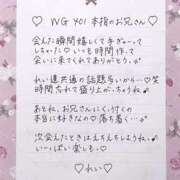 ♡ NG 401 本指のお兄さん ♡
会えた瞬間嬉しくて手ぎゅーって
しちゃった♡いっも時間作って
会いに来てくれてありがとう♡
れい達共通の話題多いから…♡笑
時間忘れて盛り上がっちゃうね♪
あとね、お兄さんにくっつくの
本当に好きなの♡落ち着く…♡
次会えたときはえちえちしようね♪
い〜っぱい楽しも♡
♡ れい ♡